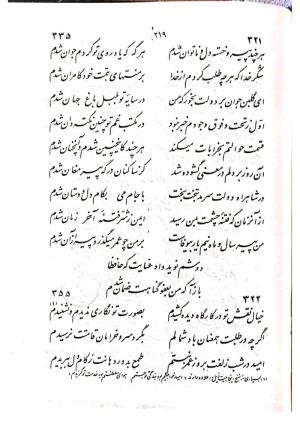 ۳۲۱ ۲۱۹ ۳۳۵
هر چند پیر و خسته دل و ناتوان شدم هر گه که یاد روی تو کردم جوان شدم
شکر خدا که هر چه طلب کردم از خدا بر منتهای همت خود کامران شدم
ای گلبن جوان بر دولت بخور که من در سایه تو بلبل باغ جهان شدم
اول ز تحت و فوق وجودم خبر نبود در مکتب غم تو چنین نکته دان شدم
قسمت حوالتم بخرابات میکند هر چند کاینچنین شدم و آنچنان شدم
آن روز بر دلم در معنی گشوده شد کز ساکنان درگه پیر مغان شدم
در شاهراه دولت سرمد بتخت بخت با جام می بکام دل دوستان شدم
از آن زمان که فتنه چشمت بمن رسید ایمن ز شر فتنه آخر زمان شدم
من پیر سال و ماه نیم یار بیوفاست بر من چو عمر میگذرد پیر از آن شدم
دوشم نوید داد عنایت که حافظا
بازآ که من بعفو گناهت ضمان شدم
۳۲۲ ۳۵۵
خیال نقش تو در کارگاه دیده کشیدم بصورت تو نگاری ندیدم و نشنیدم (۱)
اگر چه در طلبت همعنان باد شمالم بگرد سرو خرامان قامتت نرسیدم
امید در شب زلفت بروز عمر نبستم طمع بدور دهانت ز کام دل ببریدم